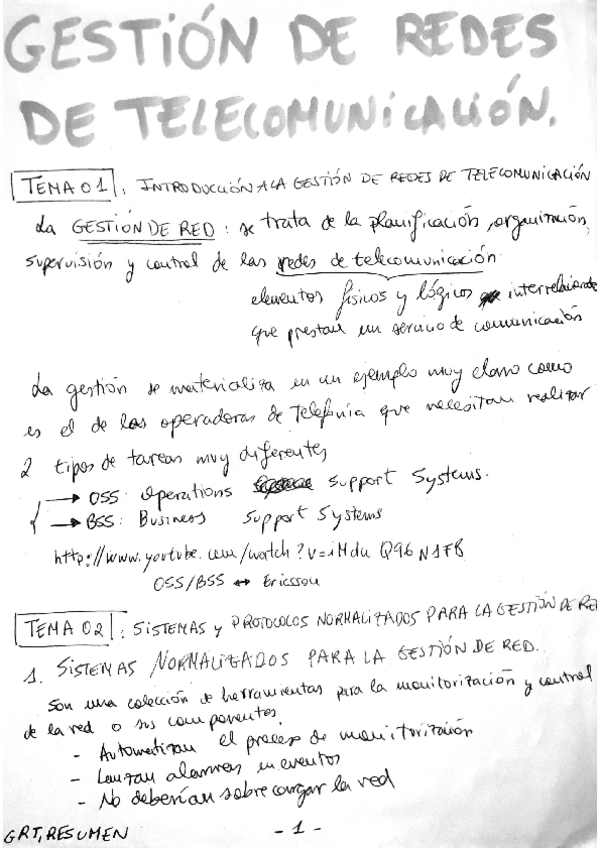 GESTIÓN DE REDES
DE TELECOMUNICACIÓN.
TEMA 01: INTRODUCCIÓN A LA GESTIÓN DE REDES DE TELECOMUNICACIÓN
La GESTIÓN DE RED: se trata de la planificación, organización,
supervisión y control de las redes de telecomunicación
elementos físicos y lógicos interrelacionado
que prestan un servicio de comunicación
La gestión se materializa en un ejemplo muy claro como
es el de las operadoras de Telefonía que necesitan realizar
2 tipos de tareas muy diferentes
→ OSS: Operations Support Systems.
→ BSS: Business Support Systems
http://www.youtube.com/watch?v=iMdu Q96 N1FB
OSS/BSS ↔ Ericsson
TEMA 02: SISTEMAS y PROTOCOLOS NORMALIZADOS PARA LA GESTIÓN DE RE
1. SISTEMAS NORMALIZADOS PARA LA GESTIÓN DE RED.
Son una colección de herramientas para la monitorización y control
de la red o sus componentes.
- Automatizan el proceso de monitorización
- Lanzan alarmas en eventos
- No deberían sobrecargar la red
GRT, RESUMEN
- 1 -